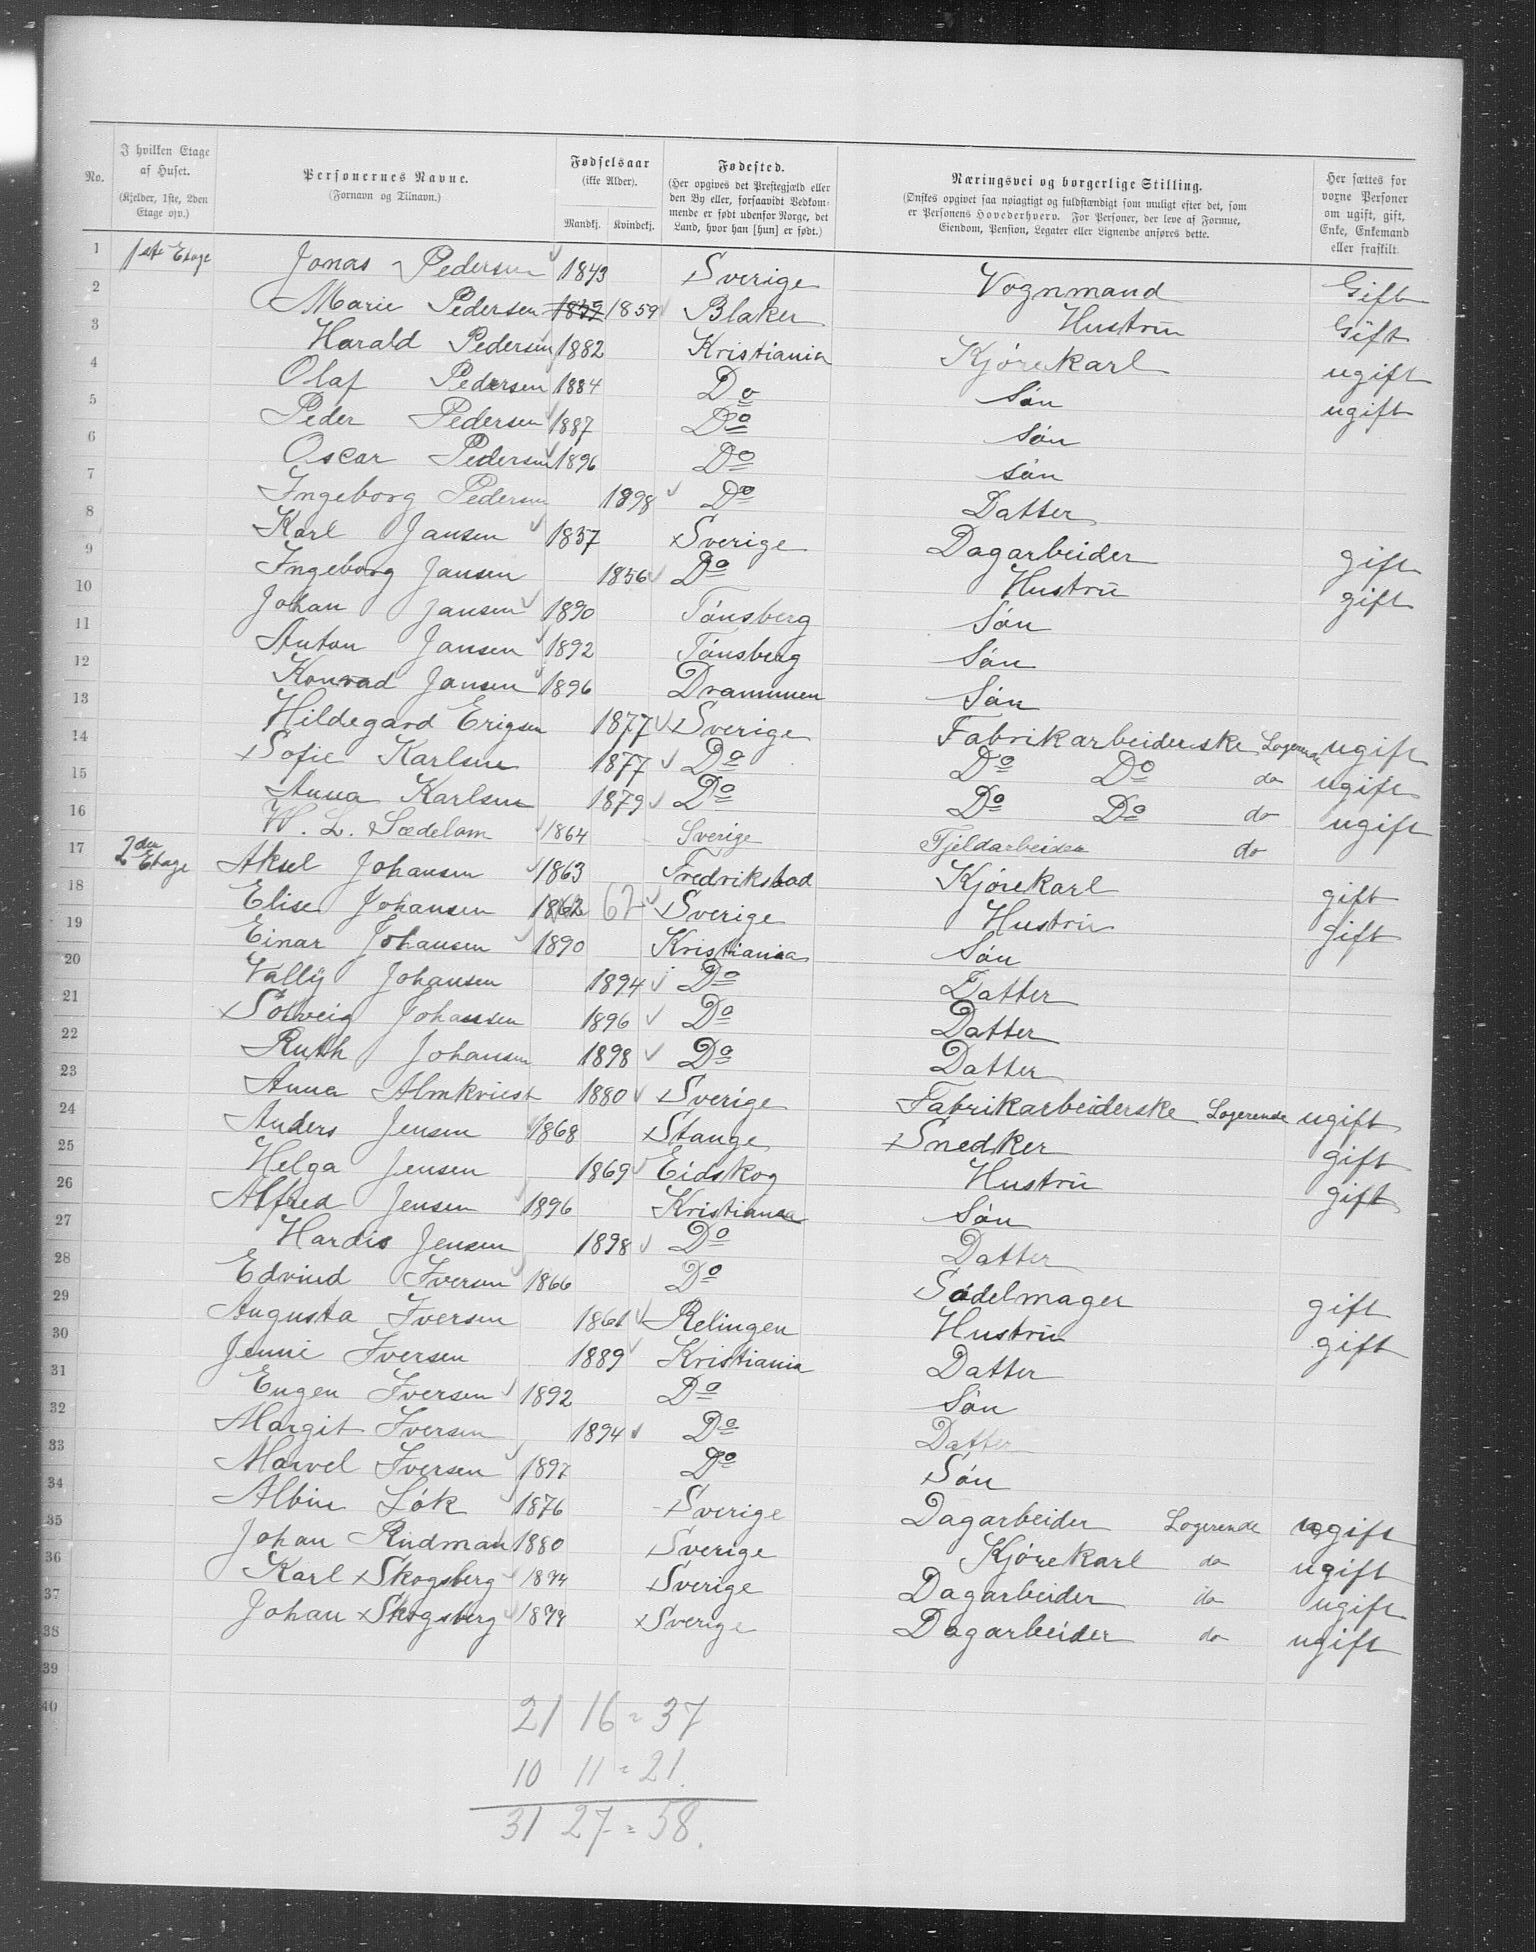 No.
I hvilken Etage af Huset. (Kjelder, 1ste, 2den Etage osv.)
Personernes Navne. (Fornavn og Tilnavn.)
Fødselsaar (ikke Alder). Mandkj. Kvindekj.
Fødested. (Her opgives det Prestegjæld eller den By eller, forsaavidt Vedkommende er født udenfor Norge, det Land, hvor han [hun] er født.)
Næringsvei og borgerlige Stilling. (Ønskes opgivet saa nøiagtigt og fuldstændigt som muligt efter det, som er Personens Hovederhverv. For Personer, der leve af Formue, Eiendom, Pension, Legater eller Lignende anføres dette.
Her sættes for voxne Personer om ugift, gift, Enke, Enkemand eller fraskilt.
1 1ste Etage Jonas Pedersen 1843 Sverige Vognmand Gift
2 Marie Pedersen 1859 1859 Blaker Hustrü Gift
3 Harald Pedersen 1882 Kristiania Kjørekarl ugift
4 Olaf Pedersen 1884 Do Søn ugift
5 Peder Pedersen 1887 Do Søn
6 Oscar Pedersen 1896 Do søn
7 Ingeborg Pedersen 1898 Do Datter
8 Karl Jansen 1837 Sverige Dagarbeider gift
9 Ingeborg Jansen 1856 Do Hustrü gift
10 Johan Jansen 1890 Tønsberg Søn
11 Anton Jansen 1892 Tønsberg Søn
12 Konrad Jansen 1896 Drammen Søn
13 Hildegard Erigsen 1877 Sverige Fabrikarbeiderske Logerende ugift
14 Sofie Karlsen 1877 Do Do Do do ugift
15 Anna Karlsen 1879 Do Do Do do ugift
16 W. L. Sædelom 1864 Sverige Fjeldarbeider do
17 2den Etage Aksel Johansen 1863 Fredrikstad Kjørekarl gift
18 Elise Johansen 1862 62 Sverige Hustrü gift
19 Einar Johansen 1890 Kristiania Søn
20 Vally Johansen 1894 Do Datter
21 Solveig Johansen 1896 Do Datter
22 Ruth Johansen 1898 Do Datter
23 Anna Almkviest 1880 Sverige Fabrikarbeiderske Logerende ugift
24 Anders Jensen 1868 Stange Snedker gift
25 Helga Jensen 1869 Eidskog Hustrü gift
26 Alfred Jensen 1896 Kristiania Søn
27 Hardis Jensen 1898 Do Datter
28 Edvind Iversen 1866 Do Sadelmager gift
29 Augusta Iversen 1861 Relingen Hustrü gift
30 Jenni Iversen 1889 Kristiania Datter
31 Eugen Iversen 1892 Do Søn
32 Margit Iversen 1894 Do Datter
33 Marvel Iversen 1897 Do Søn
34 Albin Løk 1876 Sverige Dagarbeider Logerende ugift
35 Johan Rudman 1880 Sverige Kjørekarl do ugift
36 Karl Skogsberg 1874 Sverige Dagarbeider do ugift
37 Johan Skogsberg 1879 Sverige Dagarbeider do ugift
38
39
40
21 16 = 37
10 11 = 21.
31 27 = 58.